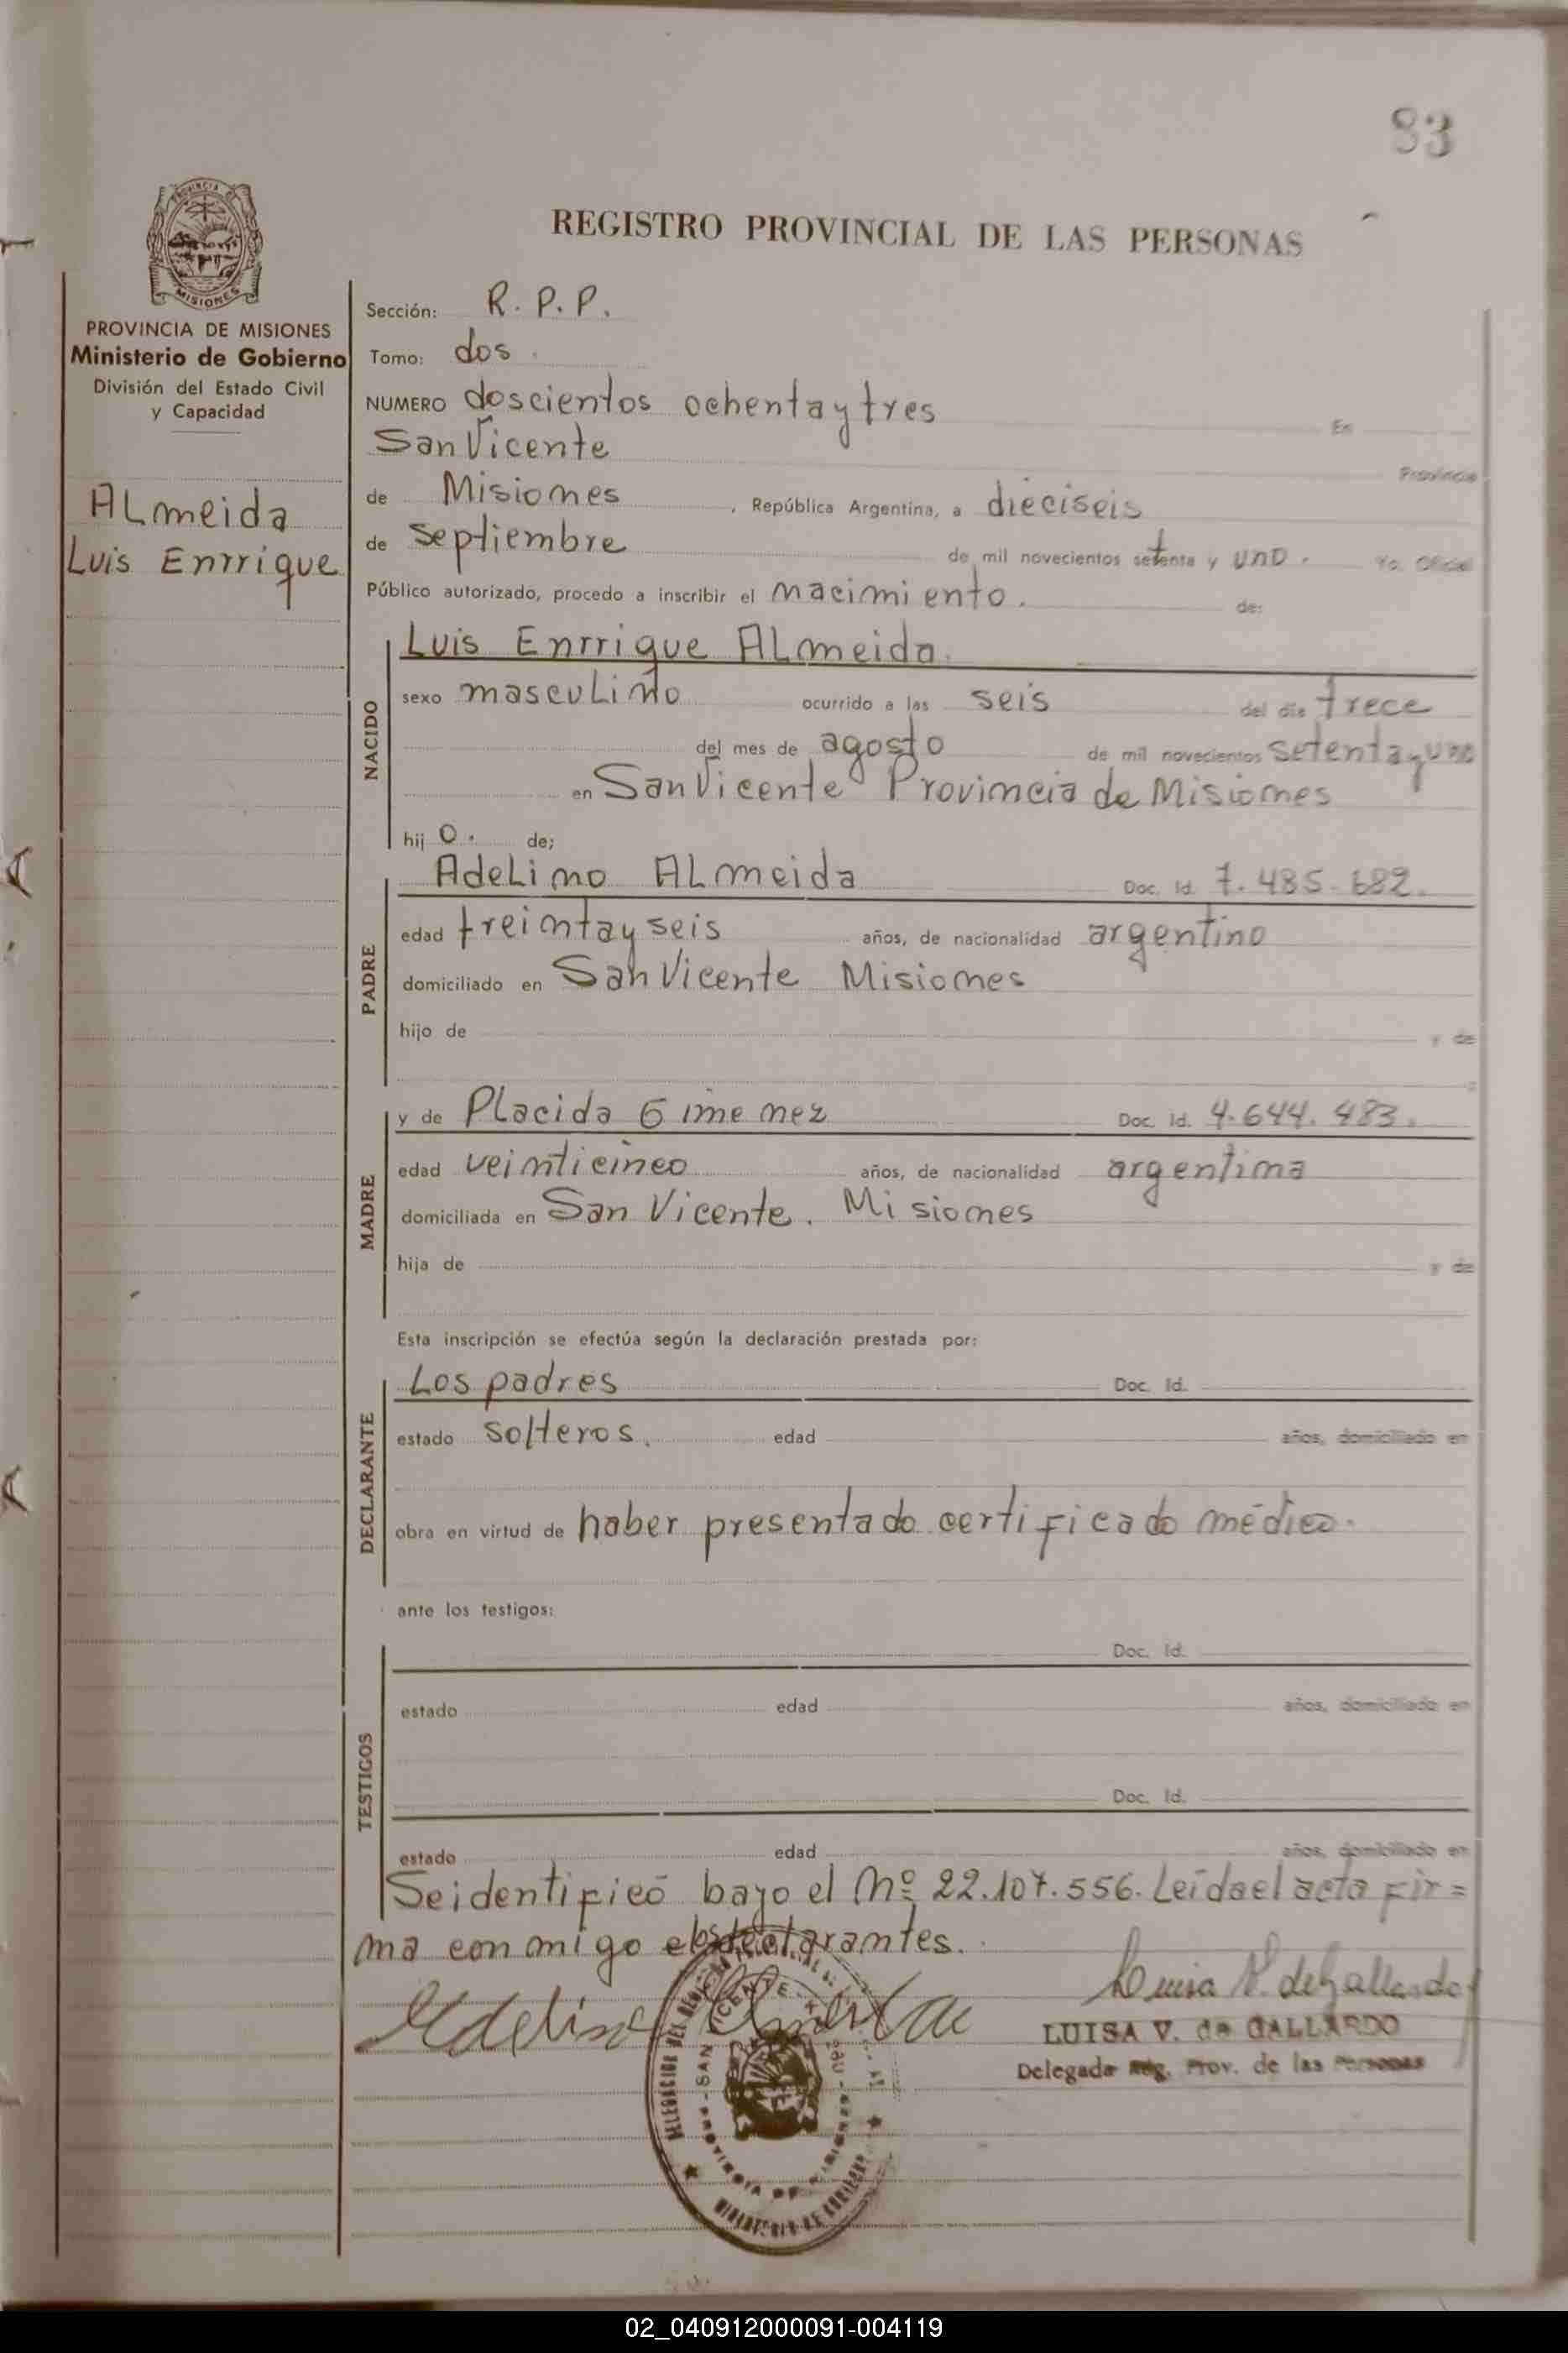 83
REGISTRO PROVINCIAL DE LAS PERSONAS
PROVINCIA DE MISIONES
Ministerio de Gobierno
División del Estado Civil
y Capacidad
ALmeida
Luis Enrrique
Sección: R. P. P.
Tomo: dos.
NUMERO doscientos ochenta y tres En
San Vicente Provincia
de Misiones, República Argentina, a dieciseis
de septiembre de mil novecientos setenta y uno. Yo, Oficial
Público autorizado, procedo a inscribir el nacimiento. de:
NACIDO
Luis Enrrique ALmeida.
sexo mascuLino ocurrido a las seis del día trece
del mes de agosto de mil novecientos setenta y uno
en San Vicente Provincia de Misiones
hij o. de;
PADRE
AdeLino ALmeida Doc. Id. 7.485.682.
edad treinta y seis años, de nacionalidad argentino
domiciliado en San Vicente Misiones
hijo de y de
MADRE
y de PLacida Gimenez Doc. Id. 4.644.483.
edad veinticinco años, de nacionalidad argentina
domiciliada en San Vicente. Misiones
hija de y de
Esta inscripción se efectúa según la declaración prestada por:
DECLARANTE
Los padres Doc. Id.
estado solteros. edad años, domiciliado en
obra en virtud de haber presentado certificado médico.
ante los testigos:
TESTIGOS
Doc. Id.
estado edad años, domiciliado en
Doc. Id.
estado edad años, domiciliado en
Se identificó bajo el Nº 22.107.556. Leída el acta fir=
ma conmigo los declarantes.
Adelino Almeida
Luisa V. de Gallardo
LUISA V. de GALLARDO
Delegada Reg. Prov. de las Personas
02_040912000091-004119